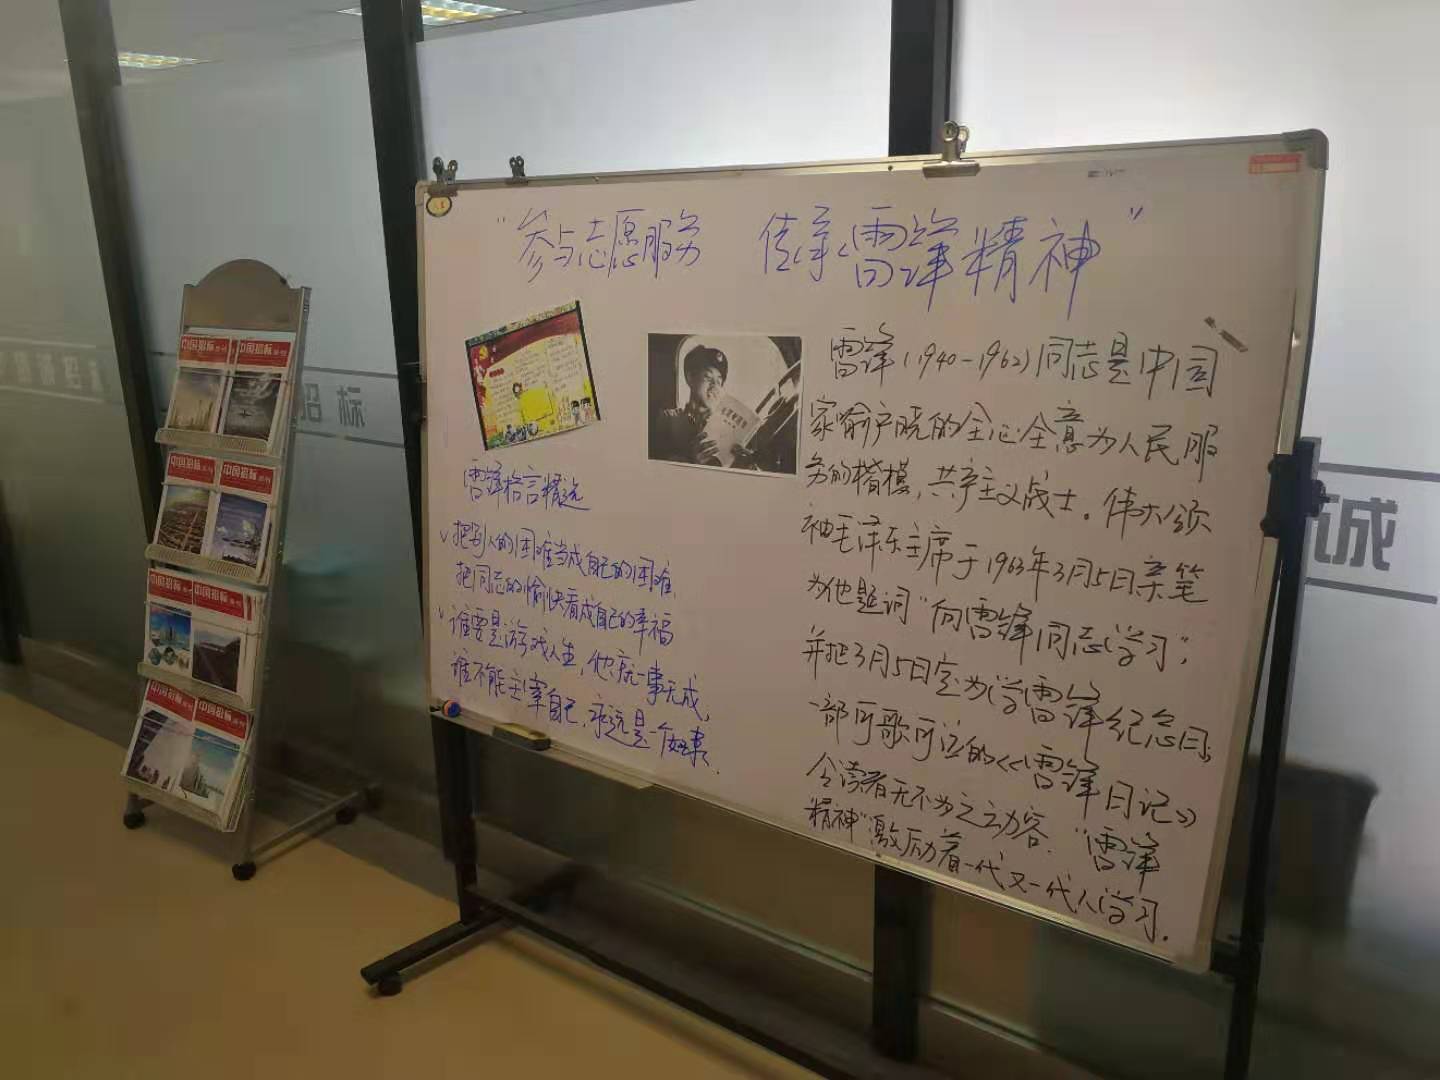 “参与志愿服务 传承雷锋精神”
雷锋格言精选
✓把别人的困难当成自己的困难
把同志的愉快看成自己的幸福
✓谁要是游戏人生,他就一事无成,
谁不能主宰自己,永远是一个奴隶.
雷锋(1940-1962)同志是中国
家喻户晓的全心全意为人民服
务的楷模,共产主义战士。伟大领
袖毛泽东主席于1963年3月5日亲笔
为他题词“向雷锋同志学习”,
并把3月5日定为学雷锋纪念日;
一部可歌可泣的《雷锋日记》
令读者无不为之动容.“雷锋
精神”激励着一代又一代人学习.
中国招标
中国招标
中国招标
中国招标
中国招标
中国招标
中国招标
中国招标
招标
诚